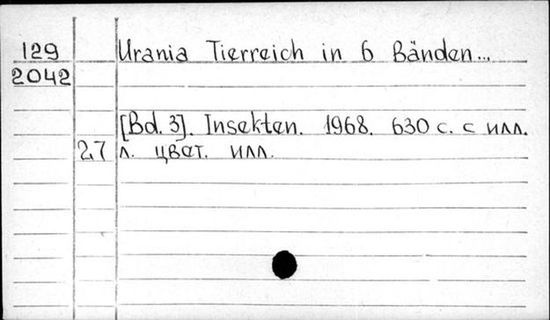 129 Urania Tierreich in 6 Bänden...
2042
[Bd. 3]. Insekten. 1968. 630 с. с илл.
27 л. цвет. илл.